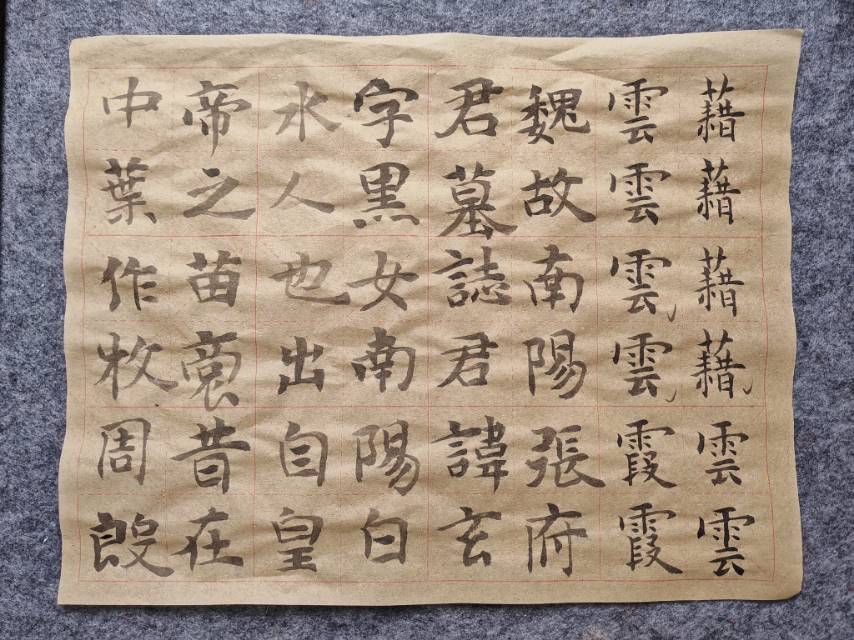 藉藉藉藉雲雲
雲雲雲雲霞霞
魏故南陽張府
君墓誌君諱玄
字黑女南陽白
水人也出自皇
帝之苗裔昔在
中葉作牧周殷